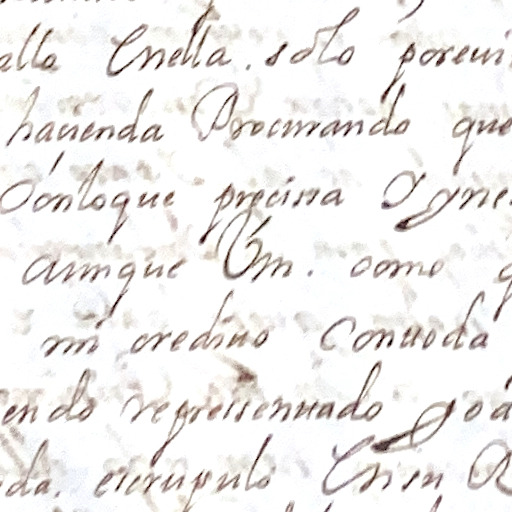 alla Enella. solo porevi
hacienda Procurando que
Conloque precissa Y yne
aunque Vm. como q
mi credito Contoda
endo representado yo a
da. escrupulo